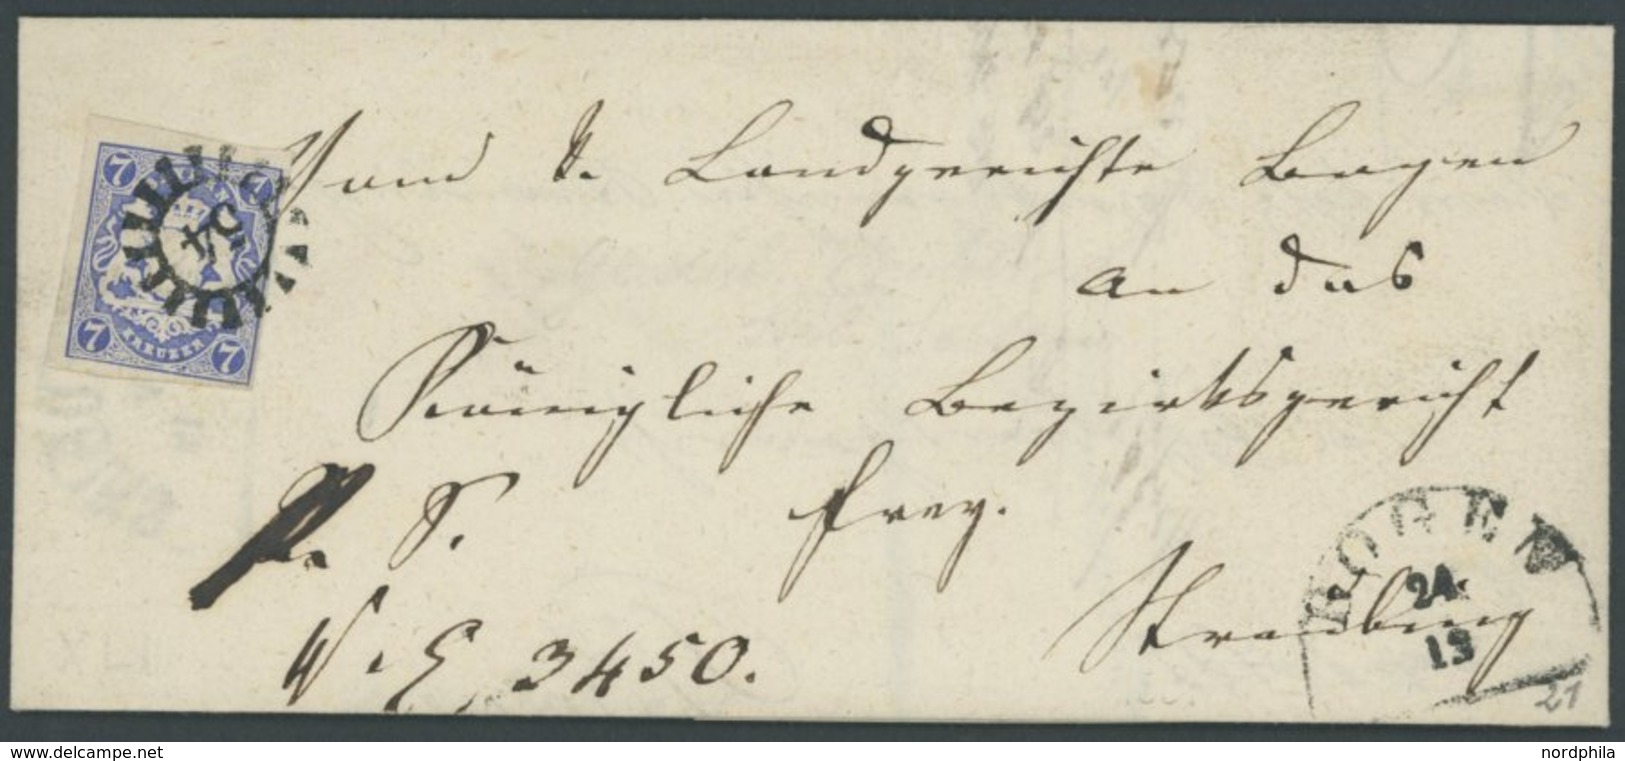 7 7
54
7 KREUZER 7
Vom k. Landgerichte Bogen
an das
Königliche Bezirksgericht
frey.
Straubing
P. S.
N. E. 3450.
BOGEN
24
13
21
www.delcampe.net
nordphila